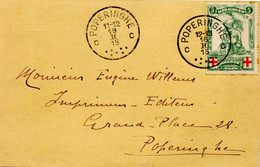 POPERINGHE
11-12
19
II
15
POPERINGHE
12-
16
II
15
5 5
Monsieur Eugène Willems
Imprimeur-Editeur
Grand-Place 28.
Poperinghe